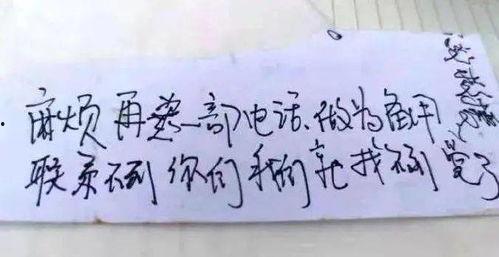 麻烦再装一部电话、做为备用
联系不到你们我们就找不到
觉了